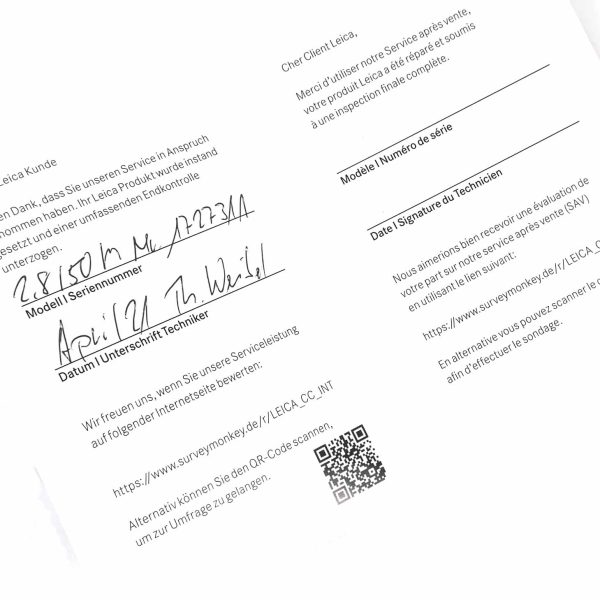 Leica Kunde
en Dank, dass Sie unseren Service in Anspruch
nommen haben. Ihr Leica Produkt wurde instand
gesetzt und einer umfassenden Endkontrolle
unterzogen.
2.8/50 M Nr. 1727311
Modell | Seriennummer
April 21 Th.
Datum | Unterschrift Techniker
Wir freuen uns, wenn Sie unsere Serviceleistung
auf folgender Internetseite bewerten:
https://www.surveymonkey.de/r/LEICA_CC_INT
Alternativ können Sie den QR-Code scannen,
um zur Umfrage zu gelangen.
Cher Client Leica,
Merci d'utiliser notre Service après vente,
votre produit Leica a été réparé et soumis
à une inspection finale complète.
Modèle | Numéro de série
Date | Signature du Technicien
Nous aimerions bien recevoir une évaluation de
votre part sur notre service après vente (SAV)
en utilisant le lien suivant:
https://www.surveymonkey.de/r/LEICA_C
En alternative vous pouvez scanner le
afin d'effectuer le sondage.